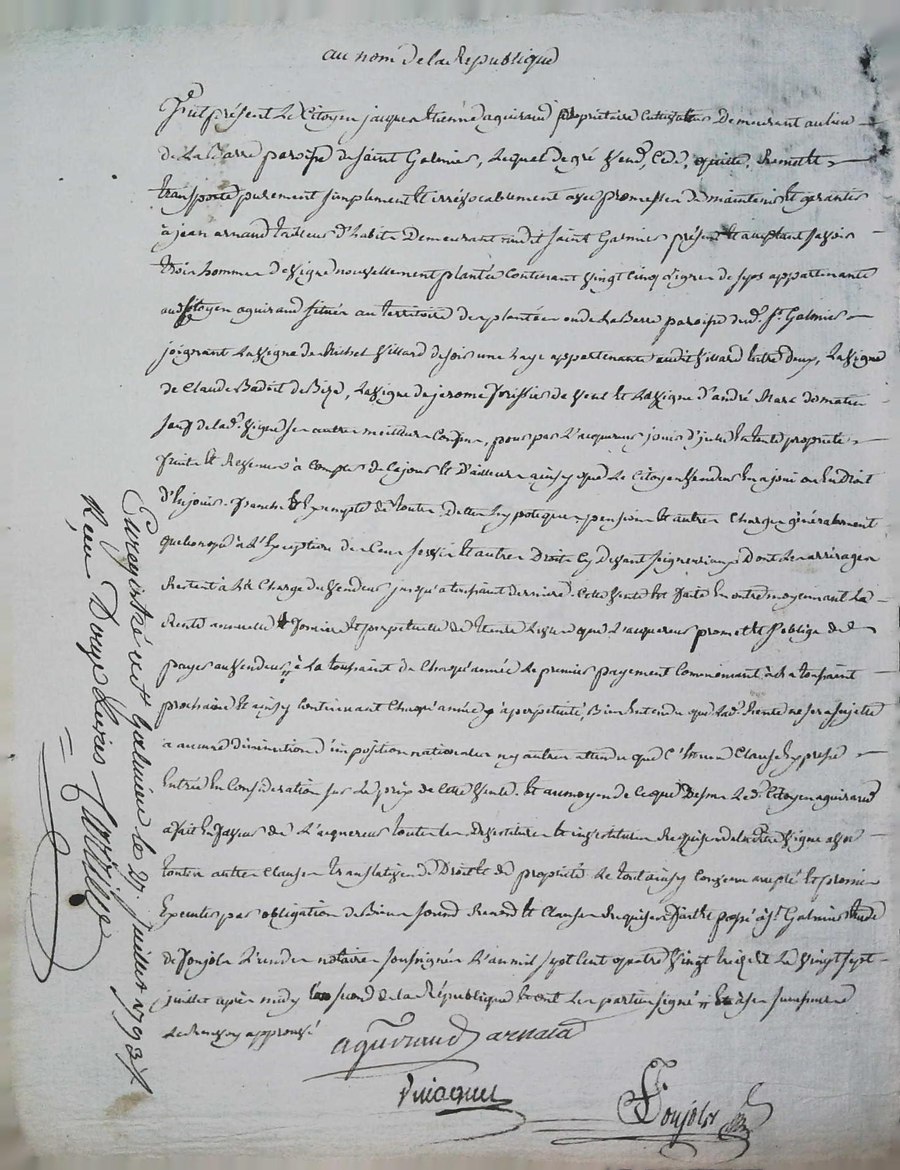 au nom de la Republique
Fut présent Le Citoyen jacques Etienne aguiraud propriétaire Cultivateur Demeurant au lieu
de La Barre paroisse de Saint Galmier, Lequel de gré Vend, Cede, quitte, Remet et
transporte purement simplement et irrévocablement avec promesse de maintenir et garantir
à jean arnaud tailleur d'habits Demeurant audit Saint Galmier présent et acceptant savoir
trois hommes de vigne nouvellement plantée Contenant vingt cinq aigres de seps appartenante
audit Citoyen aguiraud située au territoire des plantées ou de La Barre paroisse dud. St Galmier
joignant La vigne de Michel Villard de soir une haye appartenante audit Villard entre deux, La vigne
de Claude Badoit de Bize, La vigne de jerome forissier de vent et La vigne d'andré Marc de matin
sauf de lad. vigne ses autres meilleurs Confins, pour par L'acquereur jouir d'icelle en toute propriété
fruits et Revenus à Compter de Ce jour et D'ailleurs ainsy que Le Citoyen vendeur en a joui ou eu Droit
d'en jouir. franche et Exempte de toutes Dettes hypoteques pension et autres Charges généralement
quelconques à L'Exception des Cens servis et autres Droits Cy Devant seigneuriaux Dont Les arrérages
Restent à la Charge du vendeur jusqu'à toussaint derniere. Cette vente est faite En outre moyennant La
Rente annuelle fonciere et perpetuelle de trente Livres que L'acquereur promet et s'oblige de
payer au vendeur à La toussaint de Chaqu'année Le premier payement Commencant à La toussaint
prochaine et ainsy Continuant Chaqu'année à perpetuité, Bien entendu que Lad. Rente ne sera sujette
à aucune diminution d'imposition nationales ny autres attendu que C'est une Clause Expresse
Entrée En Consideration sur Le prix de Cette vente. et au moyen de Ce que Dessus Led. Citoyen aguiraud
a fait En faveur de L'acquereur toutes Les devestiture et investiture Requises de ladite vigne avec
toutes autres Clauses translatives de Droits et de propriété. Le tout ainsy Convenu accepté et promis
Executer par obligation de Biens soumis Renond et Clauses Requises fait et passé à St Galmier Etude
de Ponjols L'un des notaires soussignés L'an mil sept Cent quatre vingt treize et Le vingt sept
juillet après midy second de la République et ont Les parties signé
Le Renvoy approuvé
aguiraud arnaud
Ponjols
Enregistré à St Galmier le 27 juillet 1793
Reçu Douze Livres